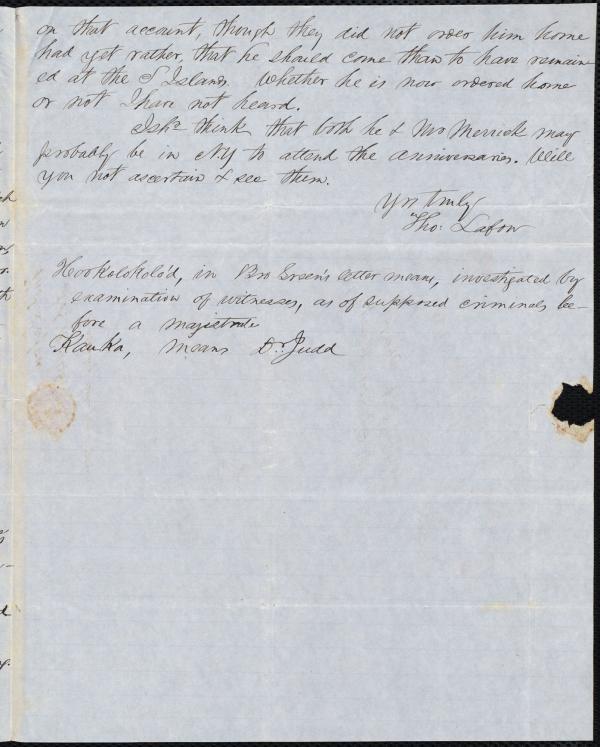 on that account, though they did not order him home
had yet rather, that he should come than to have remain
ed at the S Islands. Whether he is now ordered home
or not I have not heard.
I shd think that both he & Mr Merrick may
probably be in NY to attend the anniversaries. Will
you not ascertain & see them.
Yrs truly
Tho: Lafon
Hookolokolo'd, in Bro Green's letter means, investigated by
examination of witnesses, as of supposed criminals be-
fore a magistrate
Kauka, means Dr. Judd